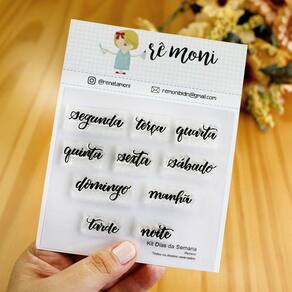 rê moni
@renatamoni
remonibidn@gmail.com
segunda terça quarta
quinta sexta sábado
domingo manhã
tarde noite
Kit Dias da Semana
Todos os direitos reservados